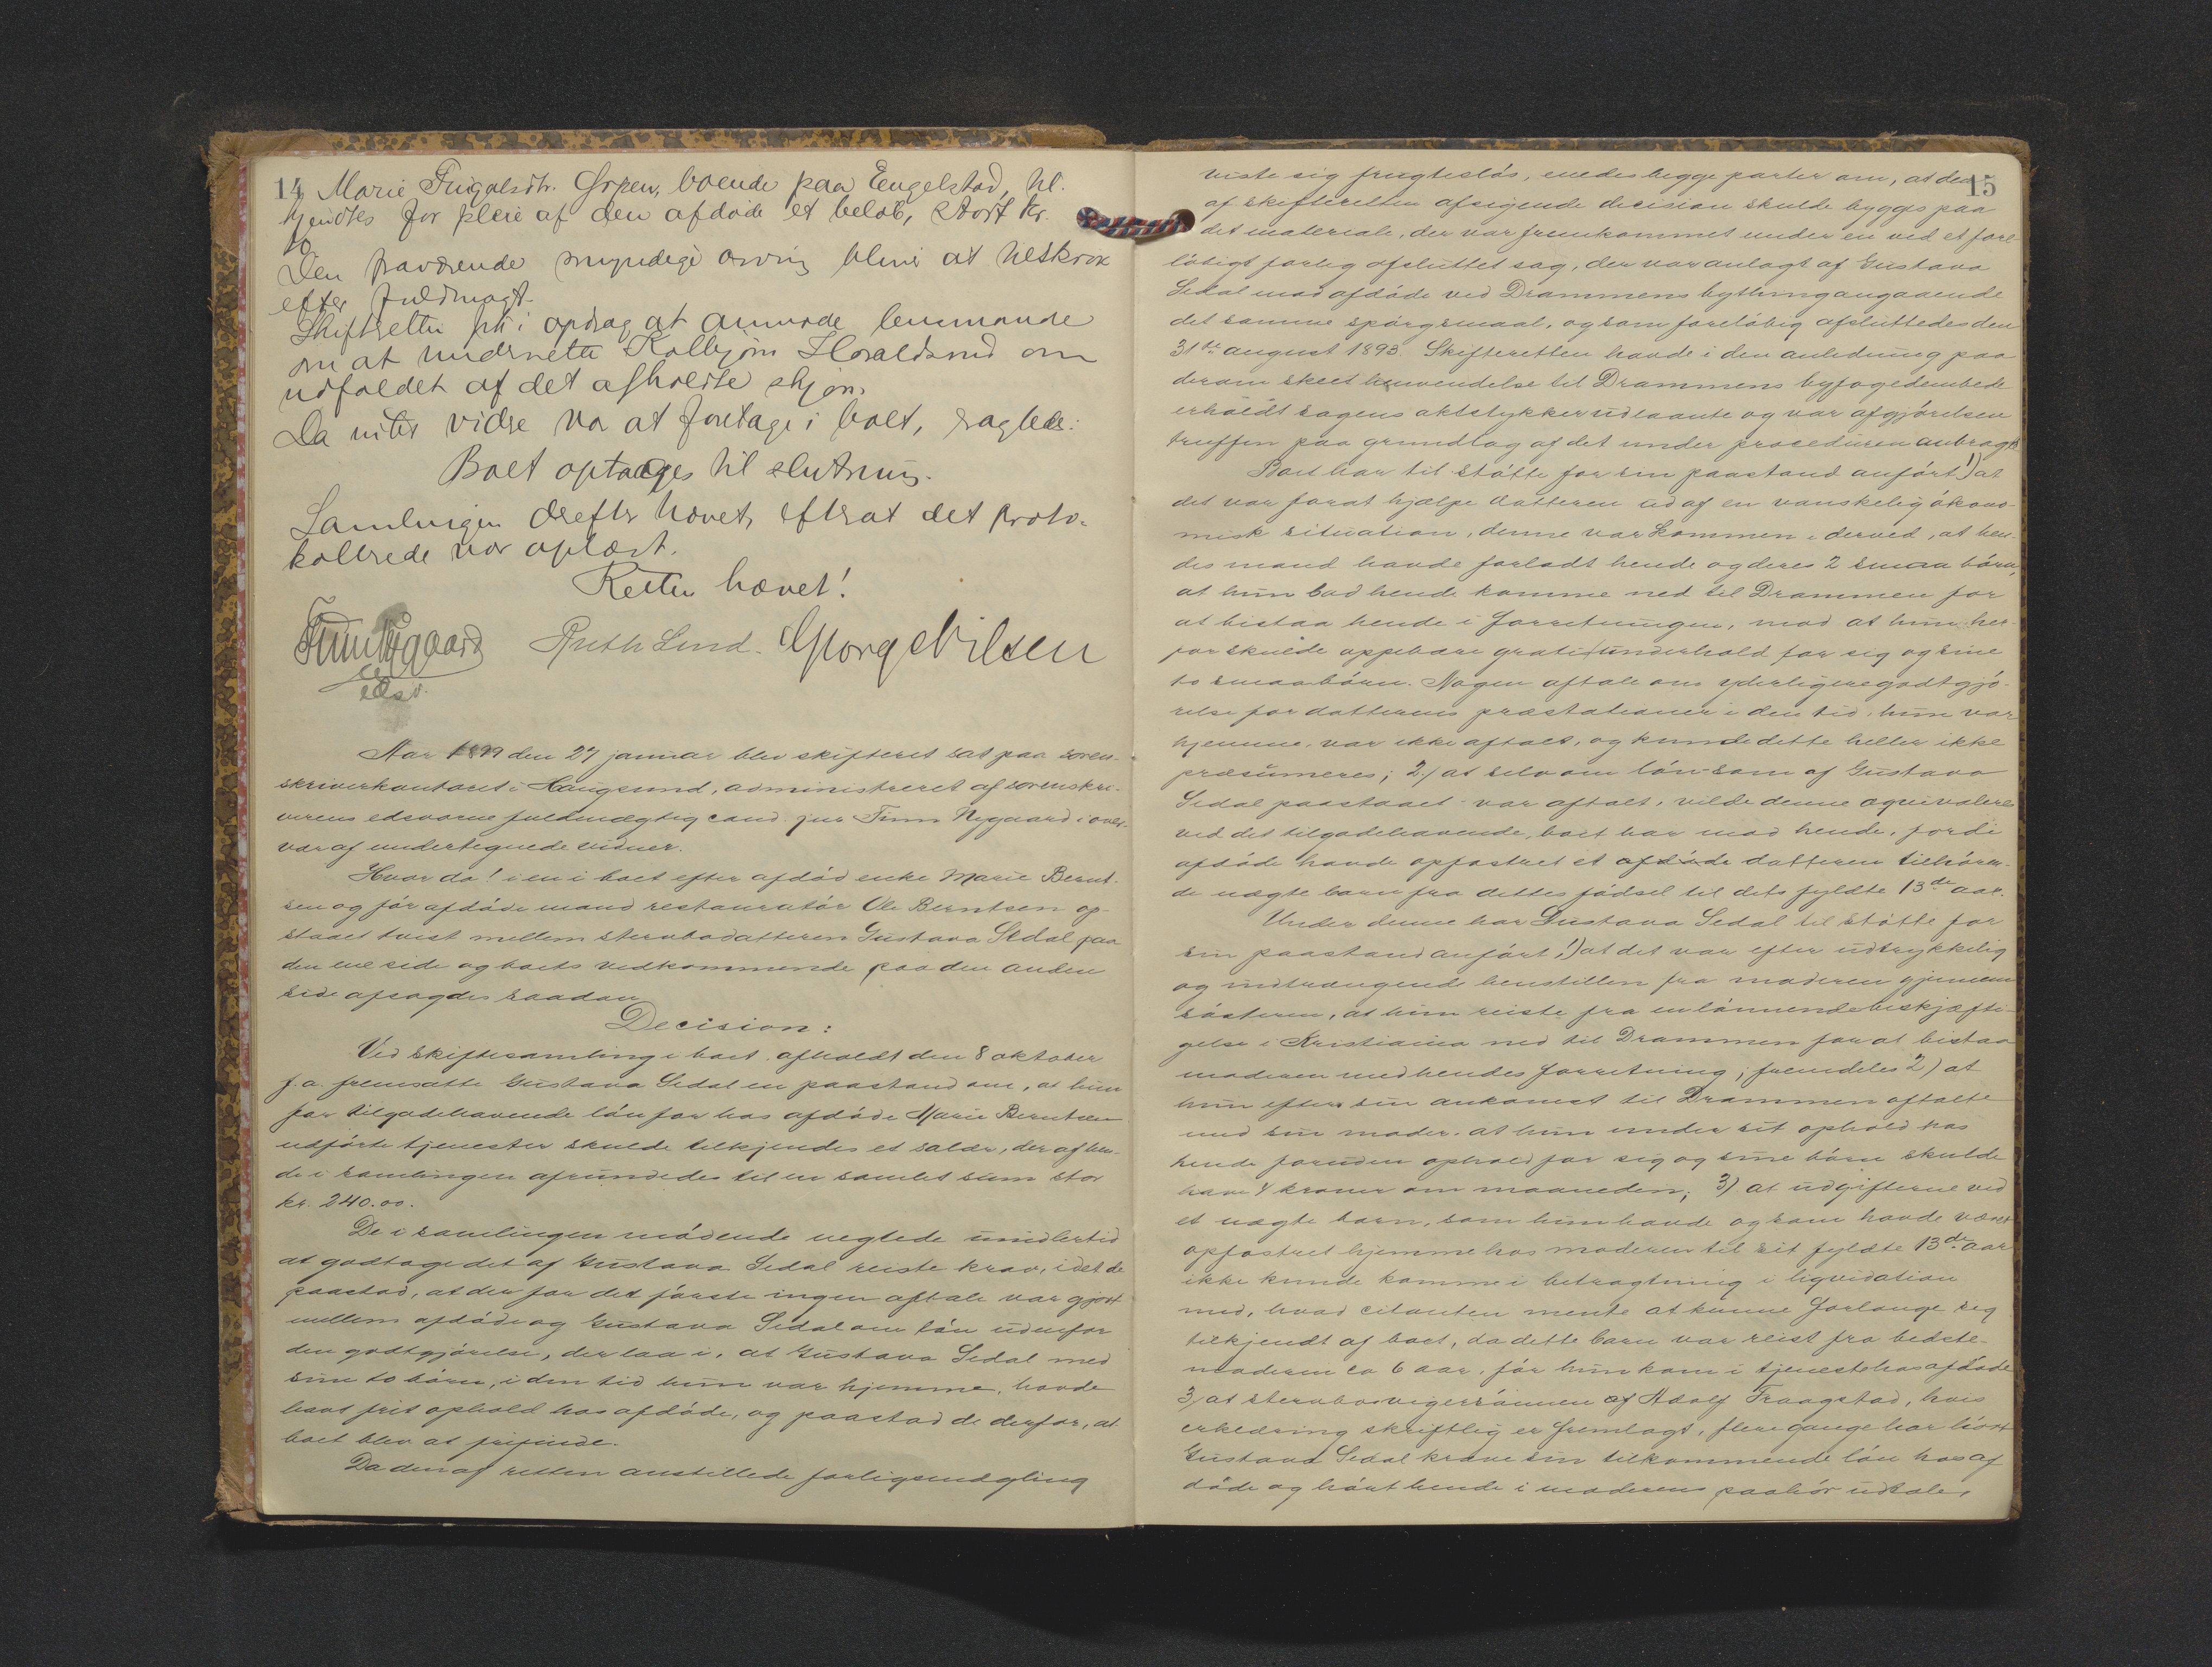 14 Marie Orpen, boende paa Engelstad, til-
kjendtes for pleie af den afdøde et beløb, stort kr.
Den fraværende myndige arving blive at tilskrive
efter fuldmagt.
Skifteretten fik i opdrag at anmode lensmande
om at underrette Kolbjørn om
udfaldet af det afholdte skjøn.
Da intet vidre var at foretage i boet, sagdes:
Boet optages til slutning.
Samlingen derefter hævet, efterat det proto-
kollerede var oplæst.
Retten hævet!
Finn Nygaard Ruth Lund. Georg Nilsen
edsv.
Aar 1899 den 27 januar blev skifteret sat paa soren-
skriverkontoret i Haugsund, administreret af sorenskri-
verens edsvorne fuldmægtig cand. jur Finn Nygaard i over-
vær af undertegnede vidner.
Hvor da! i en i boet efter afdød enke Marie Bernt-
sen og før afdøde mand restauratør Ole Berntsen op-
staaet tvist mellem stervbodatteren Gustava Sedal paa
den ene side og boets vedkommende paa den anden
side afsagdes saadan
Decision:
Ved skiftesamling i boet afholdt den 8 oktober
f.a. fremsatte Gustava Sedal en paastand om, at hun
for tilgodehavende løn for hos afdøde Marie Berntsen
udførte tjenester skulde tilkjendes et salær, der af hen-
de i samlingen afrundedes til en samlet sum stor
kr. 240.00.
De i samlingen mødende negtede imidlertid
at godtage det af Gustava Sedal reiste krav, idet de
paastod, at der for det første ingen aftale var gjort
mellem afdøde og Gustava Sedal om løn udenfor
den godtgjørelse, der laa i, at Gustava Sedal med
sine to børn, i den tid hun var hjemme, havde
havt frit ophold hos afdøde, og paastod de derfor, at
boet blev at frifinde.
Da den af retten anstillede forligsmægling
15
viste sig frugtesløs, enedes begge parter om, at den
af skifteretten afsigende decision skulde bygges paa
det materiale, der var fremkommet under en ved et fore-
løbigt forlig afsluttet sag, der var anlagt af Gustava
Sedal mod afdøde ved Drammens bything angaaende
det samme spørgsmaal, og som foreløbig afsluttedes den
31te august 1893. Skifteretten havde i den anledning paa
derom skeet henvendelse til Drammens byfogedembede
erholdt sagens aktstykker udlaante og var afgjørelsen
truffen paa grundlag af det under proceduren anbragte
Boet har til støtte for sin paastand anført 1) at
det var forat hjælpe datteren ud af en vanskelig økono-
misk situation, denne var kommen i derved, at hen-
des mand havde forladt hende og deres 2 smaa børn,
at hun bad hende komme ned til Drammen for
at bistaa hende i forretningen, mod at hun her-
for skulde oppebære gratis underhold for sig og sine
to smaabørn. Nogen aftale om yderligere godtgjø-
relse for datterens præstationer i den tid, hun var
hjemme, var ikke aftalt, og kunde dette heller ikke
præsumeres; 2) at selv om løn som af Gustava
Sedal paastaaet var aftalt, vilde denne æquivaleres
ved det tilgodehavende, boet har mod hende, fordi
afdøde havde opfostret et afdøde datteren tilhøren-
de uægte barn fra dettes fødsel til dets fyldte 13de aar.
Under denne har Gustava Sedal til støtte for
sin paastand anført 1) at det var efter udtrykkelig
og indtrængende henstillen fra moderen gjennem
søsteren, at hun reiste fra en lønnende beskjæfti-
gelse i Kristiania ned til Drammen for at bistaa
moderen med hendes forretning; fremdeles 2) at
hun efter sin ankomst til Drammen aftalte
med sin moder, at hun under sit ophold hos
hende foruden ophold for sig og sine børn skulde
have 4 kroner om maaneden; 3) at udgifterne ved
et uægte barn, som hun havde og som havde været
opfostret hjemme hos moderen til sit fyldte 13de aar
ikke kunde komme i betragtning i liqvidation
med, hvad citanten mente at kunne forlange sig
tilkjendt af boet, da dette barn var reist fra bedste-
moderen ca 6 aar, før hun kom i tjeneste hos afdøde
3) at stervbosvigersønnen af Adolf Fraagstad, hvis
erklæring skriftlig er fremlagt, flere gange har hørt
Gustava Sedal kræve sin tilkommende løn hos af
døde og hørt hende i moderens paahør udtale,